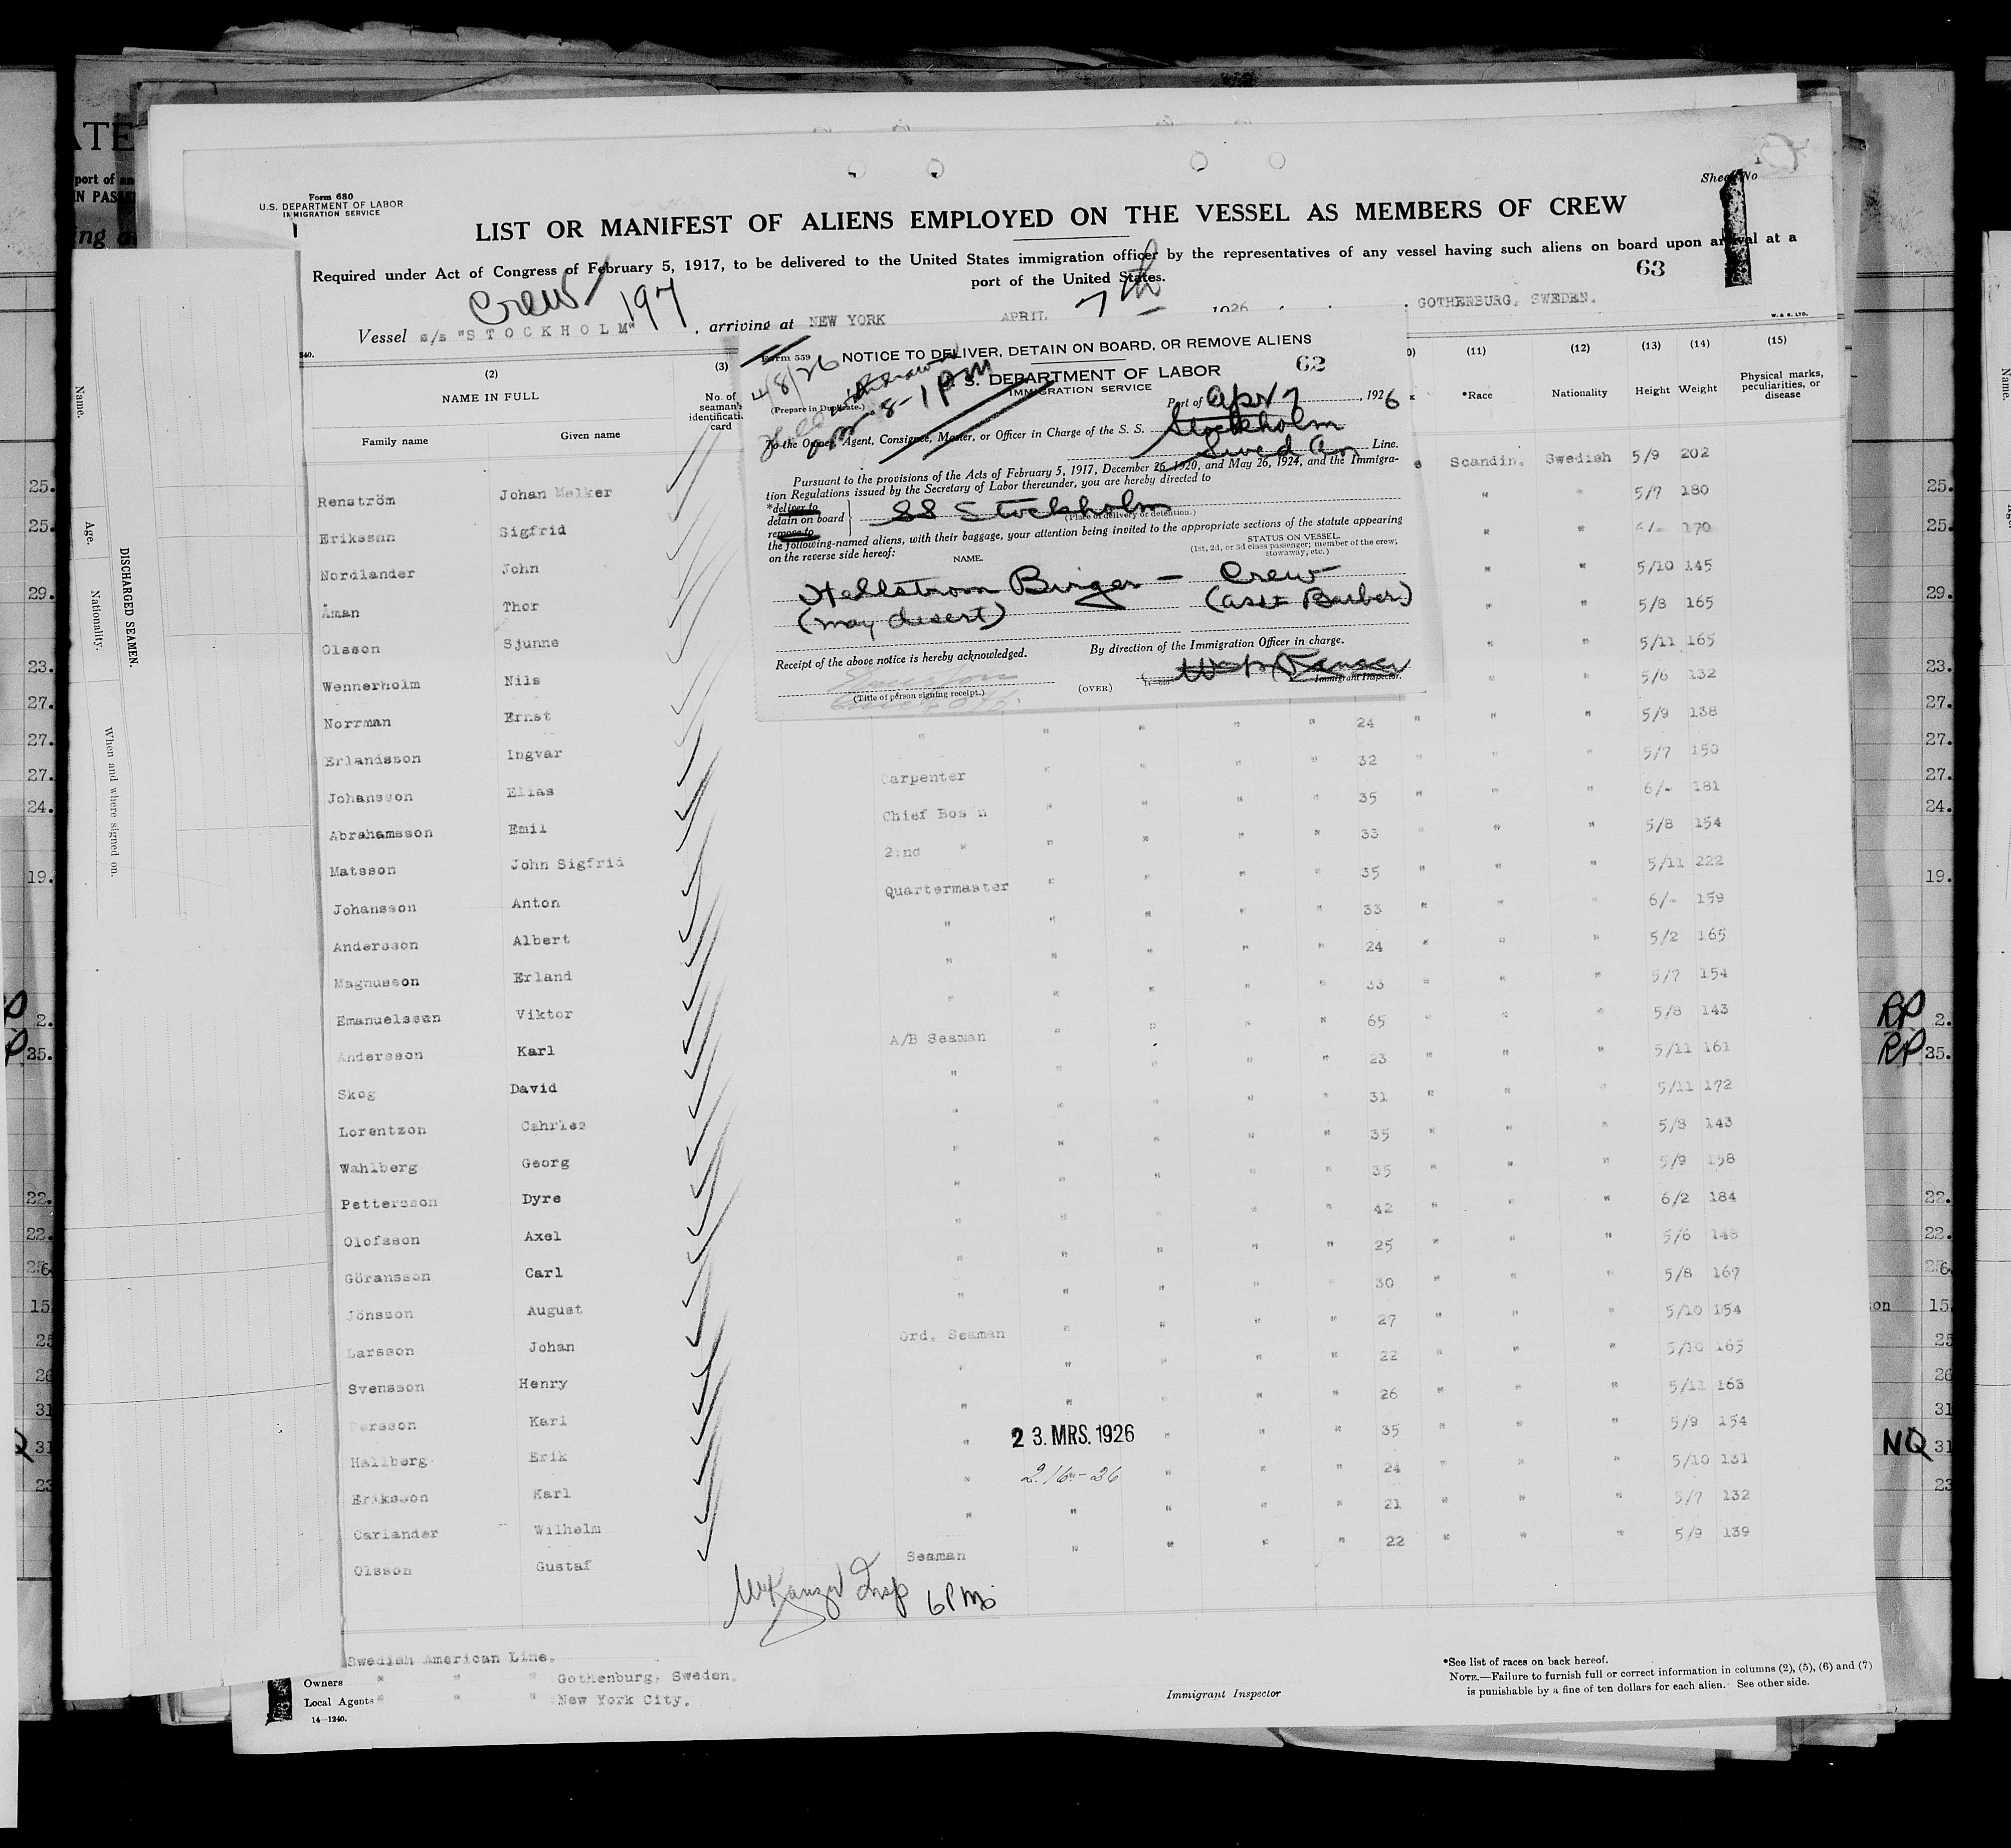 Form 680
U.S. DEPARTMENT OF LABOR
IMMIGRATION SERVICE
Sheet No
LIST OR MANIFEST OF ALIENS EMPLOYED ON THE VESSEL AS MEMBERS OF CREW
Required under Act of Congress of February 5, 1917, to be delivered to the United States immigration officer by the representatives of any vessel having such aliens on board upon arrival at a
port of the United States.
63
Crew 197
Vessel s/s "STOCKHOLM", arriving at NEW YORK APRIL 7th 1926, GOTHENBURG, SWEDEN.
W. & S. LTD.
(2) (3) (11) (12) (13) (14) (15)
NAME IN FULL
Family name Given name
No. of seaman's identification card
*Race Nationality Height Weight Physical marks, peculiarities, or disease
Form 559
NOTICE TO DELIVER, DETAIN ON BOARD, OR REMOVE ALIENS
62
4/8/26
U. S. DEPARTMENT OF LABOR
IMMIGRATION SERVICE
(Prepare in Duplicate.)
8-1 PM
Port of Apr 7, 1926
To the Owner, Agent, Consignee, Master, or Officer in Charge of the S. S. Stockholm
Swed Am Line.
Pursuant to the provisions of the Acts of February 5, 1917, December 26, 1920, and May 26, 1924, and the Immigra-
tion Regulations issued by the Secretary of Labor thereunder, you are hereby directed to
*deliver to
detain on board
remove to
SS Stockholm
(Place of delivery or detention.)
the following-named aliens, with their baggage, your attention being invited to the appropriate sections of the statute appearing
on the reverse side hereof:
NAME.
STATUS ON VESSEL
(1st, 2d, or 3d class passenger; member of the crew; stowaway, etc.)
Hellstrom Birger - Crew
(may desert) (asst Barber)
Receipt of the above notice is hereby acknowledged.
By direction of the Immigration Officer in charge.
(Title of person signing receipt.)
(OVER)
Immigrant Inspector.
Renström Johan Melker Scandin. Swedish 5/9 202
Eriksson Sigfrid " " 5/7 180
Nordlander John " " 6/- 170
Åman Thor " " 5/10 145
Olsson Sjunne " " 5/8 165
Wennerholm Nils " " 5/11 165
Norrman Ernst " " 5/6 132
Erlandsson Ingvar " " " " " 24 " " " 5/9 138
Johansson Elias Carpenter " " " " 32 " " " 5/7 150
Abrahamsson Emil Chief Bos'n " " " " 35 " " " 6/- 181
Matsson John Sigfrid 2:nd " " " " " 33 " " " 5/8 154
Johansson Anton Quartermaster " " " " 35 " " " 5/11 222
Andersson Albert " " " " " 33 " " " 6/- 159
Magnusson Erland " " " " " 24 " " " 5/2 165
Emanuelsson Viktor " " " " " 33 " " " 5/7 154
Andersson Karl A/B Seaman " " " " 65 " " " 5/8 143
Skog David " " " " " 23 " " " 5/11 161
Lorentzon Cahrles " " " " " 31 " " " 5/11 172
Wahlberg Georg " " " " " 35 " " " 5/8 143
Pettersson Dyre " " " " " 35 " " " 5/9 158
Olofsson Axel " " " " " 42 " " " 6/2 184
Göransson Carl " " " " " 25 " " " 5/6 148
Jönsson August " " " " " 30 " " " 5/8 167
Larsson Johan Ord. Seaman " " " " 27 " " " 5/10 154
Svensson Henry " " " " " 22 " " " 5/10 165
Persson Karl " " " " " 26 " " " 5/11 163
Hallberg Erik " 23. MRS. 1926 " " " 35 " " " 5/9 154
Eriksson Karl " 2.16-26 " " " 24 " " " 5/10 131
Carlander Wilhelm " " " " " 21 " " " 5/7 132
Olsson Gustaf Seaman " " " " 22 " " " 5/9 139
Insp 6PM
Swedish American Line.
Owners " " " Gothenburg, Sweden.
Local Agents " " " New York City.
14-1240.
Immigrant Inspector
*See list of races on back hereof.
NOTE.—Failure to furnish full or correct information in columns (2), (5), (6) and (7)
is punishable by a fine of ten dollars for each alien. See other side.
Name.
Age.
Nationality.
DISCHARGED SEAMEN.
When and where signed on.
RP 2.
RP 35.
NQ 31